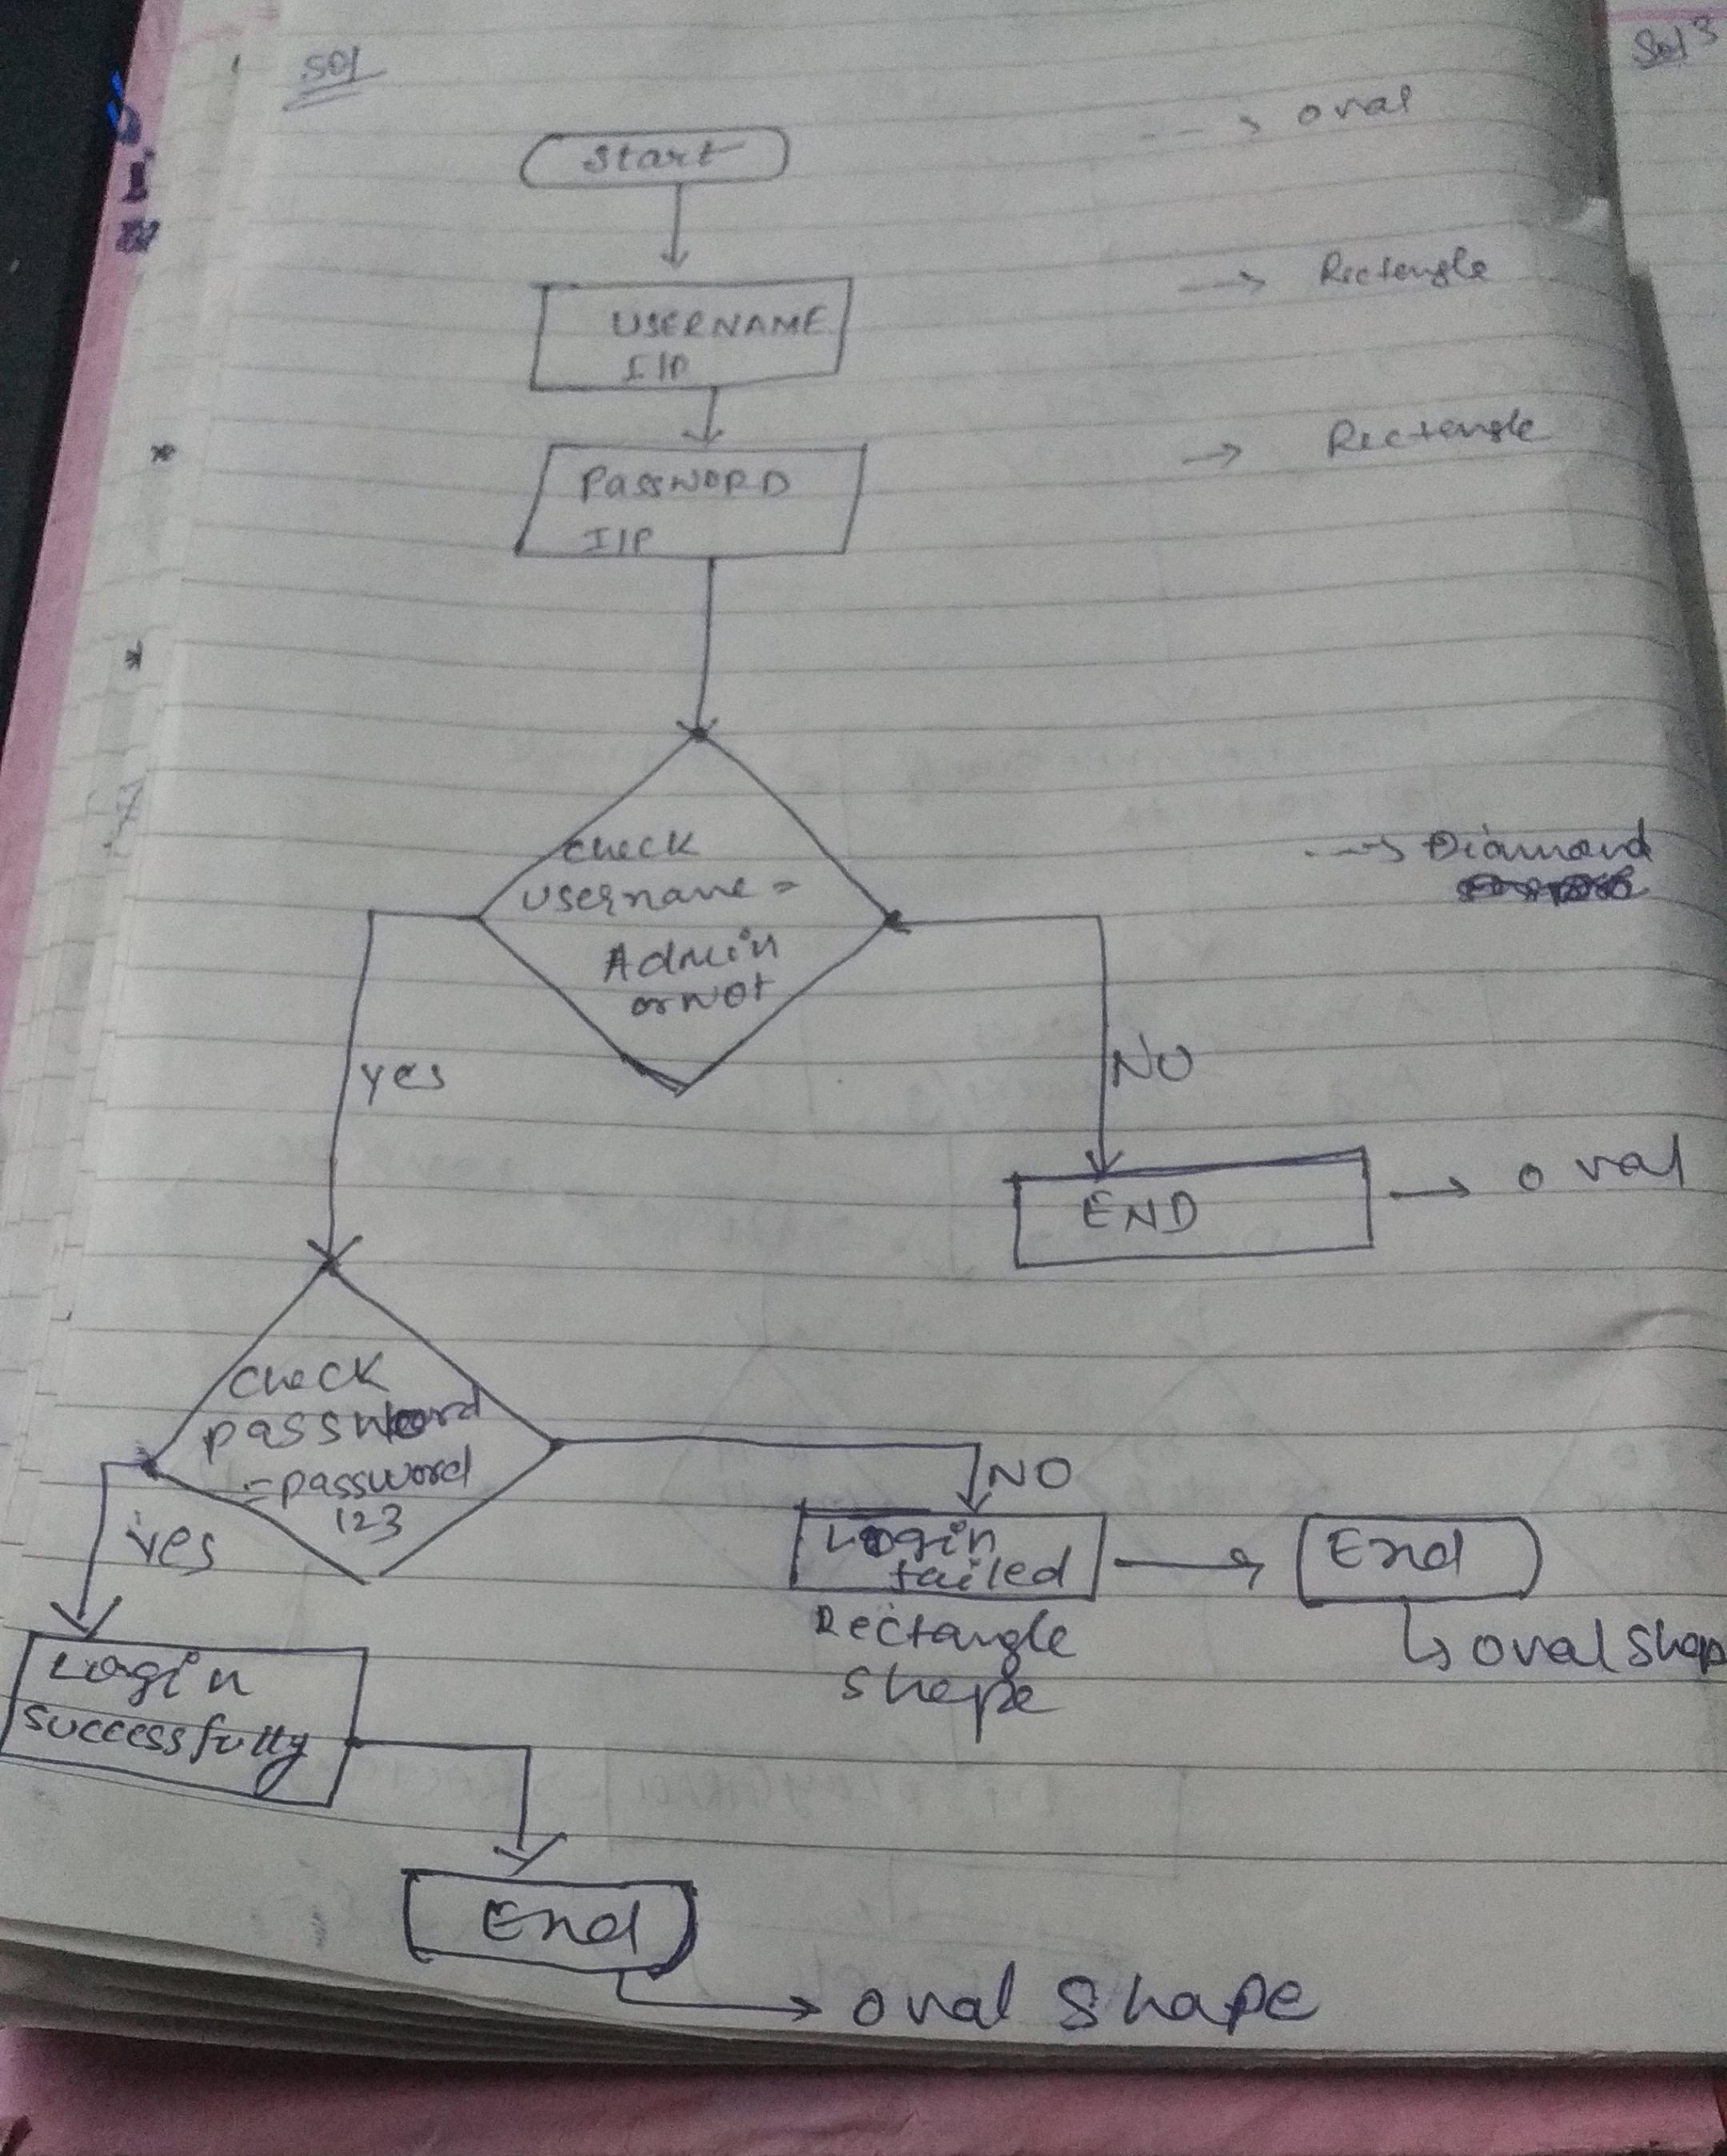 Sol
Sol 3
Start
--> oval
USERNAME
I/P
--> Rectangle
PASSWORD
I/P
-> Rectangle
check
username =
Admin
or Not
--> Diamond
yes
NO
END
-> oval
check
password
= password
123
yes
NO
Login
failed
Rectangle
Shape
End
oval Shap
Login
successfully
End
oval shape